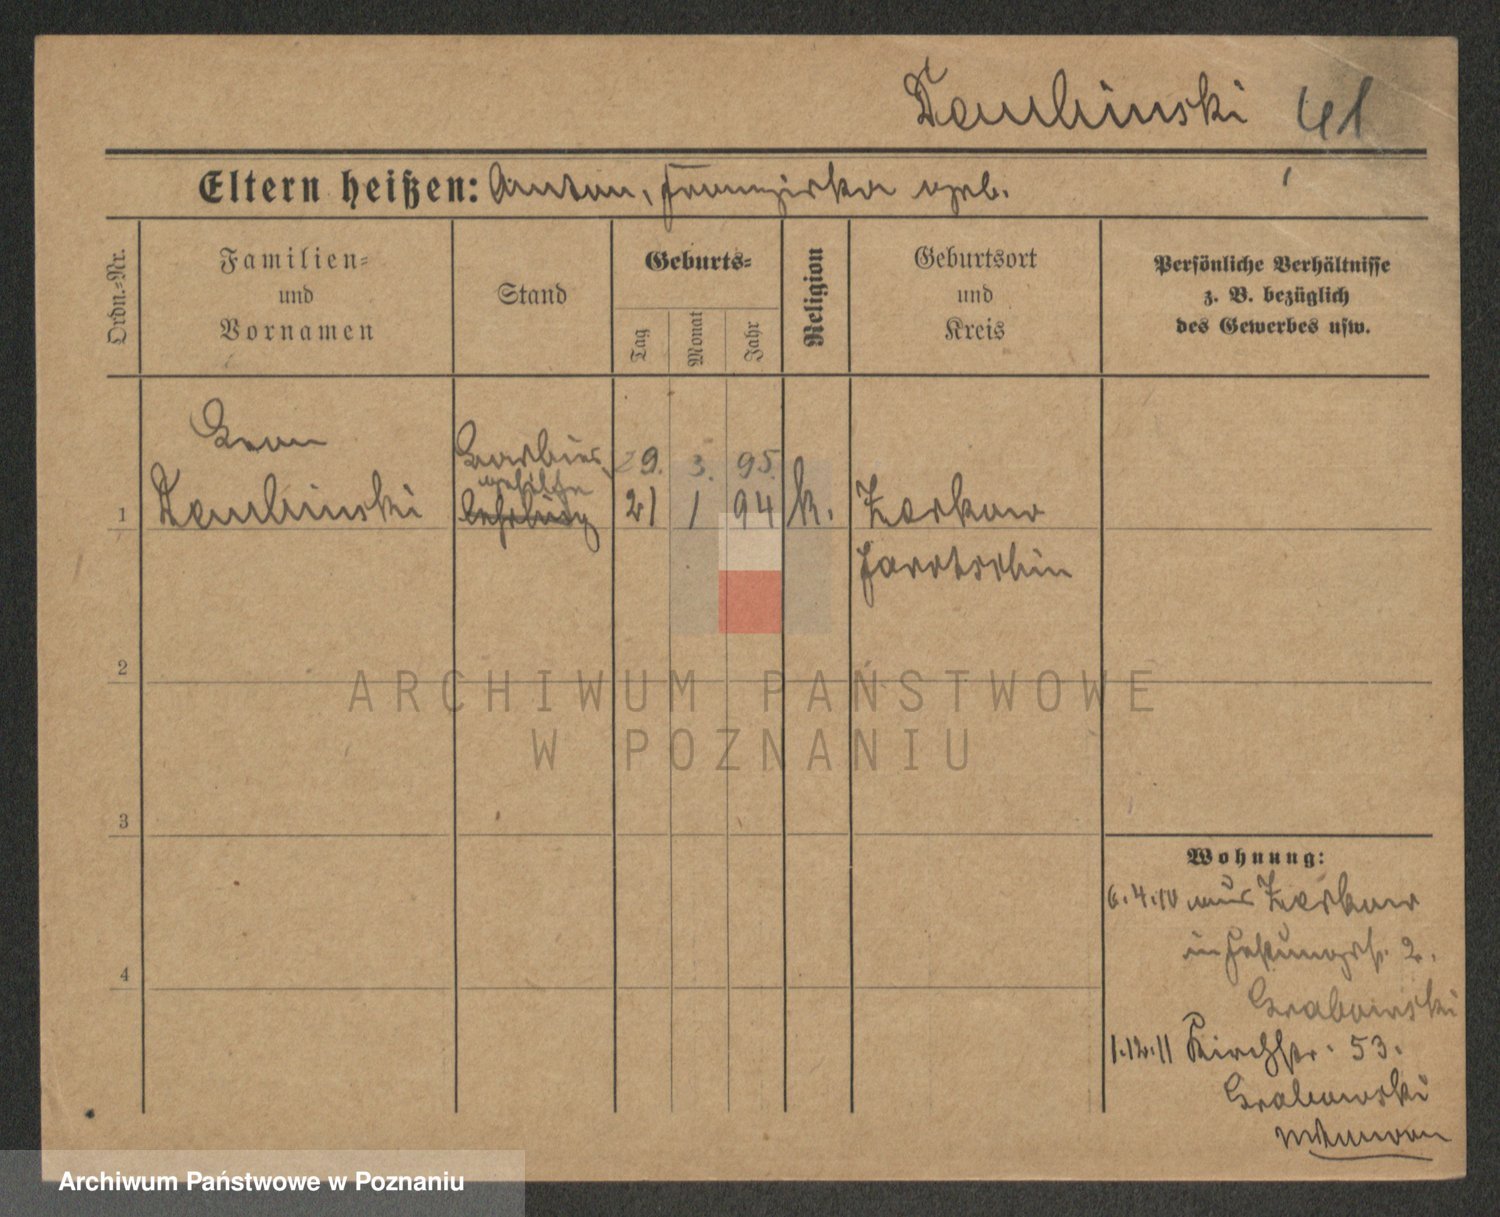 Dembinski 41
Eltern heißen: Anton, Franziska geb.
Ordn.=Nr.
Familien=
und
Vornamen
Stand
Geburts=
Tag
Monat
Jahr
Religion
Geburtsort
und
Kreis
Persönliche Verhältnisse
z. B. bezüglich
des Gewerbes usw.
Leon
Barbier
29. 3. 95.
gehilfe
1 Dembinski lehrling 21 1 94 k. Zerkow
Jarotschin
2
3
4
Wohnung:
6.4.10 aus Zerkow
in 2.
Grabowski
1.12.11 Kirchstr. 53.
Grabowski
ARCHIWUM PAŃSTWOWE
W POZNANIU
Archiwum Państwowe w Poznaniu